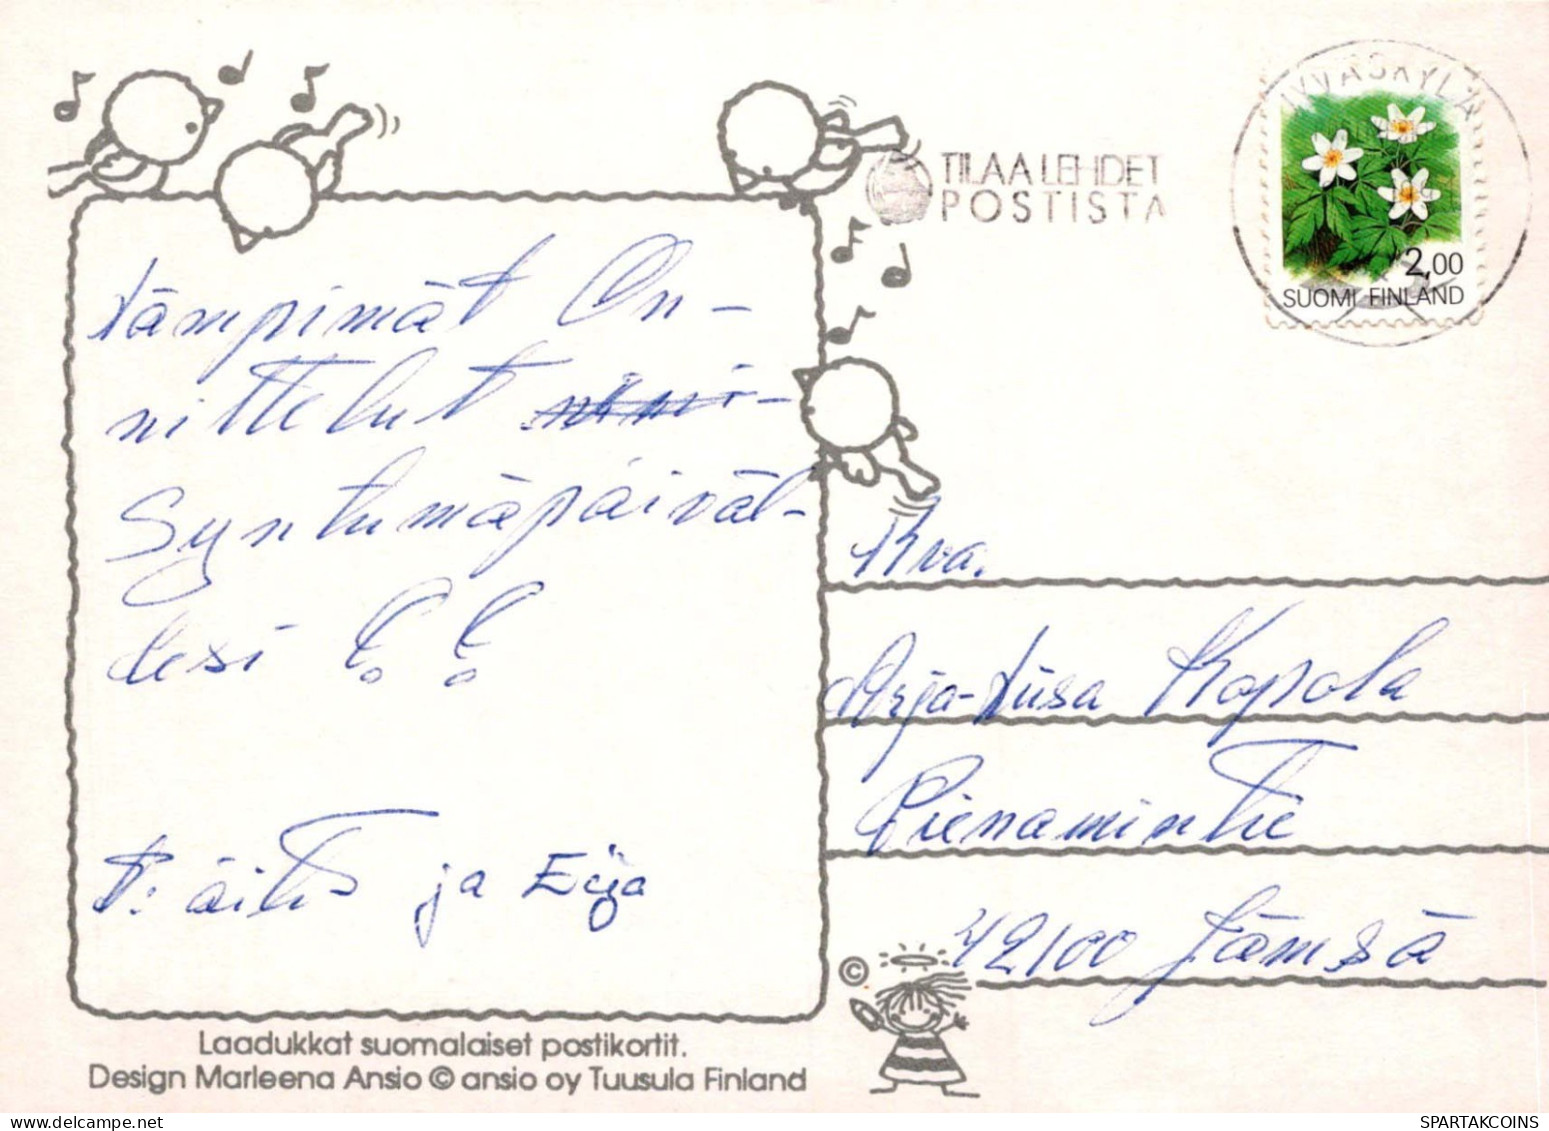 JYVÄSKYLÄ
TILAA LEHDET
POSTISTA
2,00
SUOMI FINLAND
Lämpimät On-
nittelut
Syntumäpäiväl-
lesi !!
T: äiti ja Eija
Rva.
Arja-Liisa Kopola
Pienamintie
42100 Jämsä
©
Laadukkat suomalaiset postikortit.
Design Marleena Ansio © ansio oy Tuusula Finland
www.delcampe.net
SPARTAKCOINS